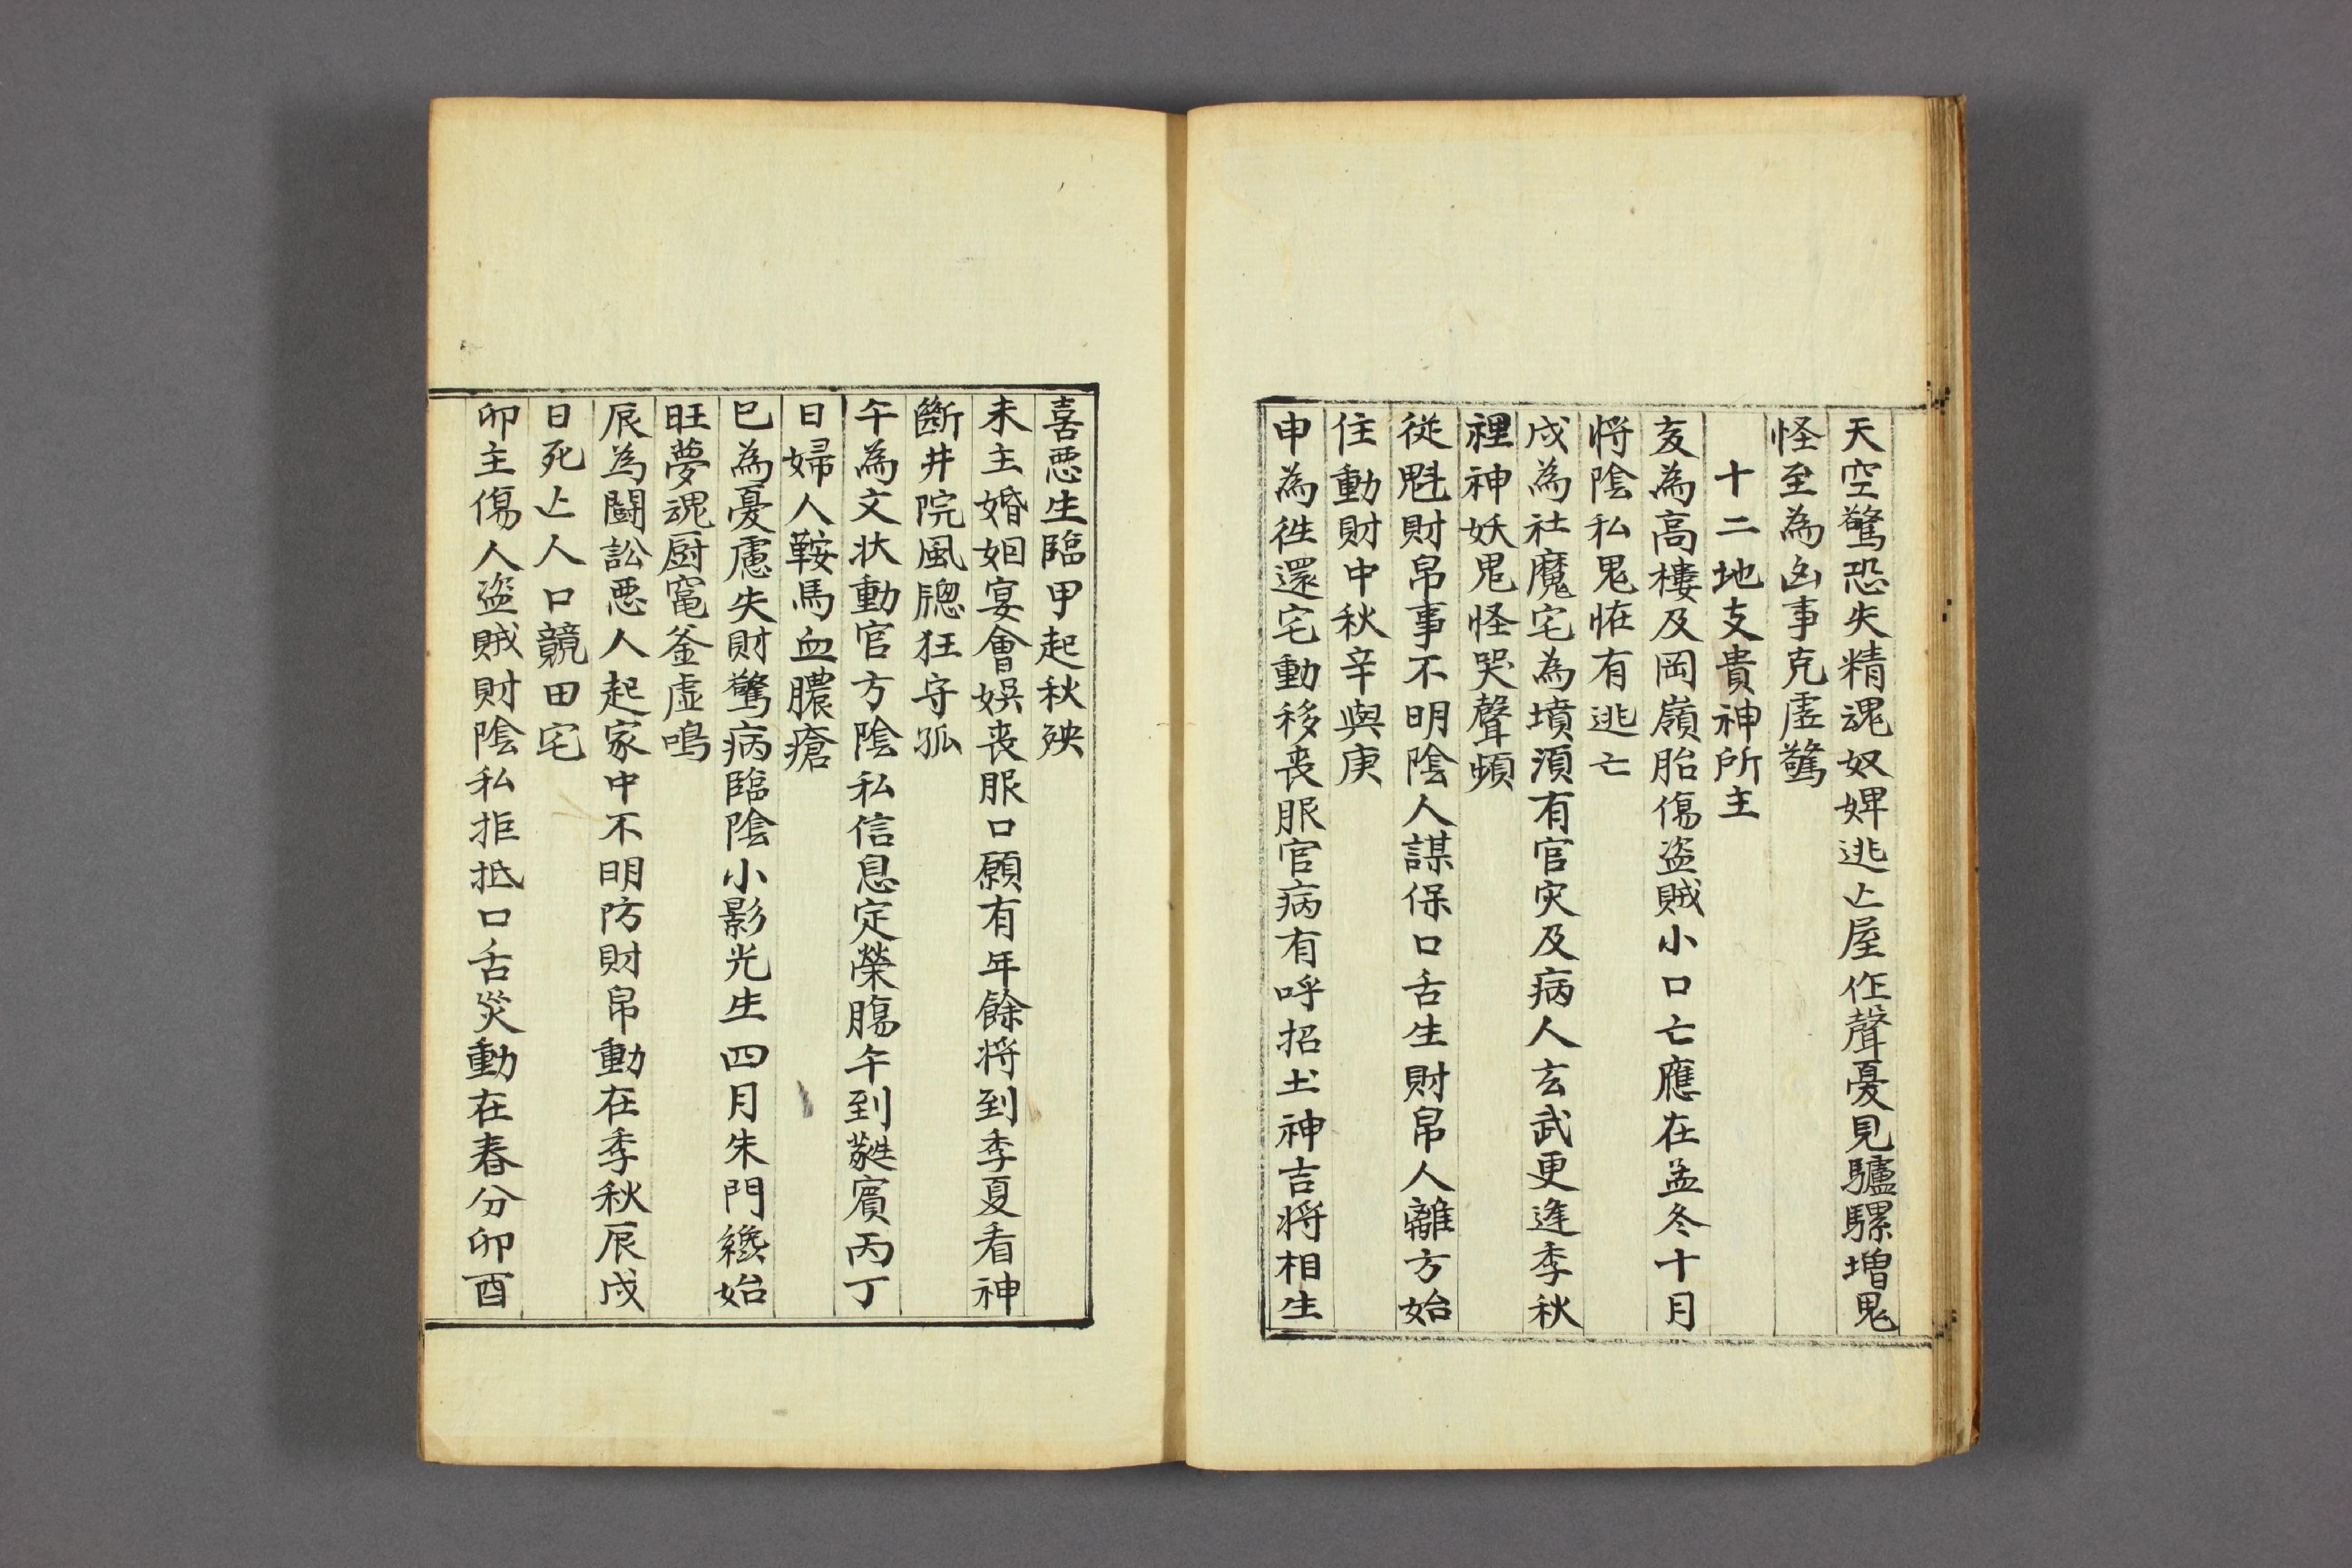 天空驚恐失精魂奴婢逃亡屋作聲憂見驢騾增鬼
怪至為凶事克虛驚
十二地支貴神所主
亥為高樓及岡嶺胎傷盜賊小口亡應在孟冬十月
將陰私鬼怪有逃亡
戌為社魔宅為墳須有官灾及病人玄武更逢季秋
裡神妖鬼怪哭聲頻
從魁財帛事不明陰人謀保口舌生財帛人離方始
住動財中秋辛與庚
申為徃還宅動移丧服官病有呼招土神吉將相生
喜惡生臨甲起秋殃
未主婚姻宴會娛丧服口願有年餘將到季夏看神
斷井院風牕狂守孤
午為文状動官方陰私信息定榮腸午到蕤賓丙丁
日婦人鞍馬血膿瘡
巳為憂慮失財驚病臨陰小影光生四月朱門纔始
旺夢魂厨竃釜虛鳴
辰為鬪訟惡人起家中不明防財帛動在季秋辰戌
日死亡人口競田宅
卯主傷人盜賊財陰私拒抵口舌災動在春分卯酉